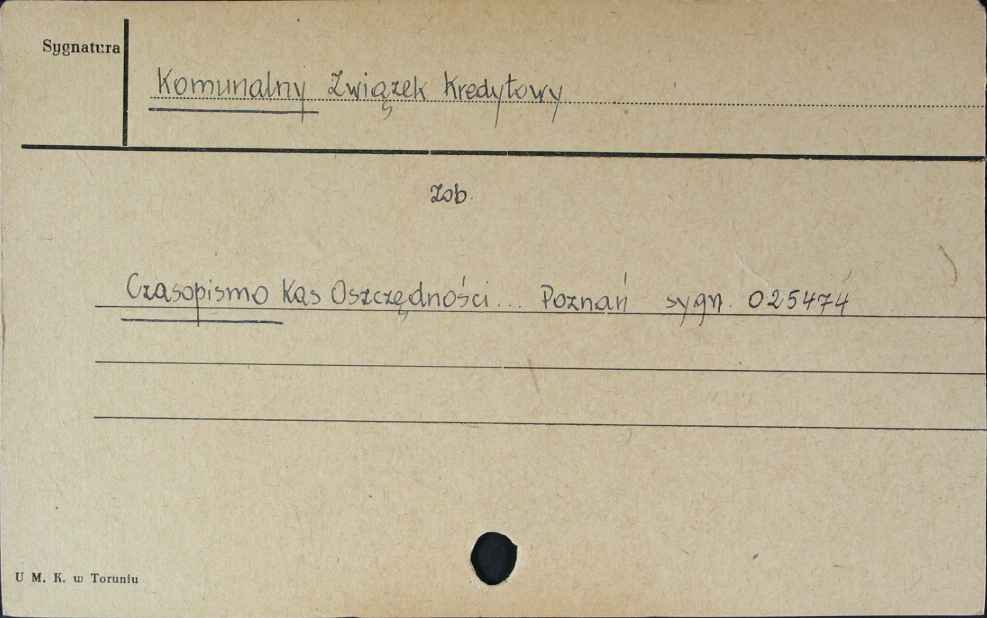 Sygnatura
Komunalny Związek Kredytowy
Zob.
Czasopismo Kas Oszczędności... Poznań sygn. 025474
U M. K. w Toruniu